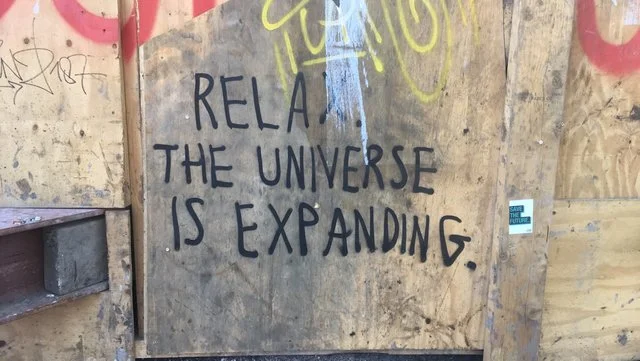 RELA
THE UNIVERSE
IS EXPANDING.
SAVE
THE
FUTURE